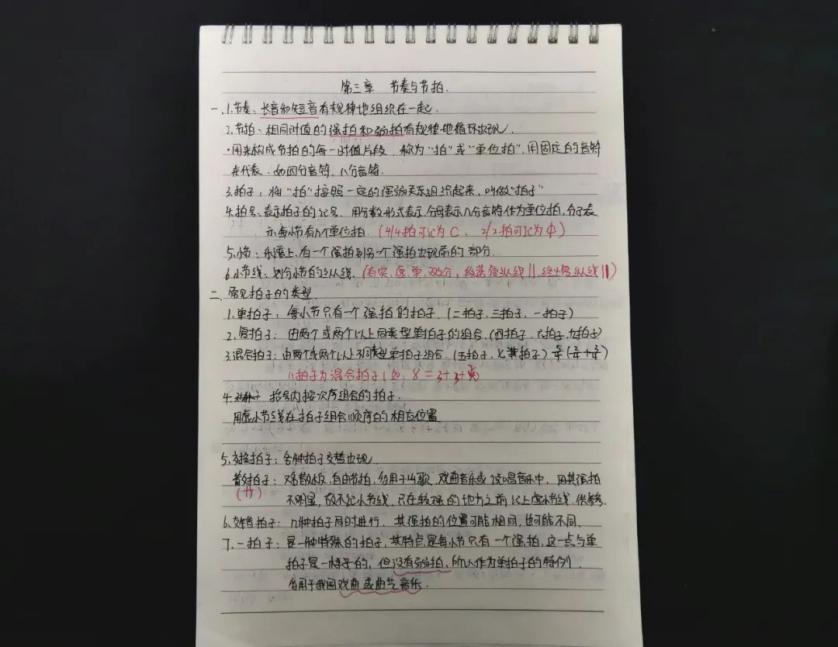 第三章 节奏与节拍.
一、1.节奏、长音和短音有规律地组织在一起.
2.节拍:相同时值的强拍和弱拍有规律地循环出现.
·用来构成节拍的每一时值片段,称为"拍"或"单位拍",用固定的音符
来代表:如四分音符、八分音符.
3.拍子:将"拍"按照一定的强弱关系组织起来,叫做"拍子"
4.拍号:表示拍子的记号.用分数形式表示,分母表示几分音符作为单位拍,分子表
示每小节有几个单位拍.(4/4拍可记为C、2/2拍可记为¢)
5.小节:乐谱上,有一个强拍到另一个强拍出现前的部分.
6.小节线、划分小节的纵线.
二、常见拍子的类型.
1.单拍子:每小节只有一个强拍的拍子.(二拍子,三拍子,一拍子)
2.复拍子:由两个或两个以上同类型单拍子的组合.(四拍子、六拍子,九拍子)
3.混合拍子:由两个或两个以上不同类型单拍子组合.(五拍子,七拍子)
8拍子为混合拍子 8=3+3+2
4. 拍号内按次序组合的拍子.
用虚小节线在拍子组合顺序的相应位置
5.交换拍子:各种拍子交替出现.
散拍子:又名散板,自由节拍,多用于山歌、戏曲音乐或说唱音乐中,因其强拍
(サ) 不明显,故不记小节线,只在较强的地方之前记上虚小节线,供参考.
6.交错拍子:几种拍子同时进行.其强拍的位置可能相同,也可能不同.
7.一拍子:是一种特殊的拍子,其特点是每小节只有一个强拍,这一点与单
拍子是一样的,但没有弱拍,所以作为单拍子的特例.
多用于我国戏曲或曲艺音乐.